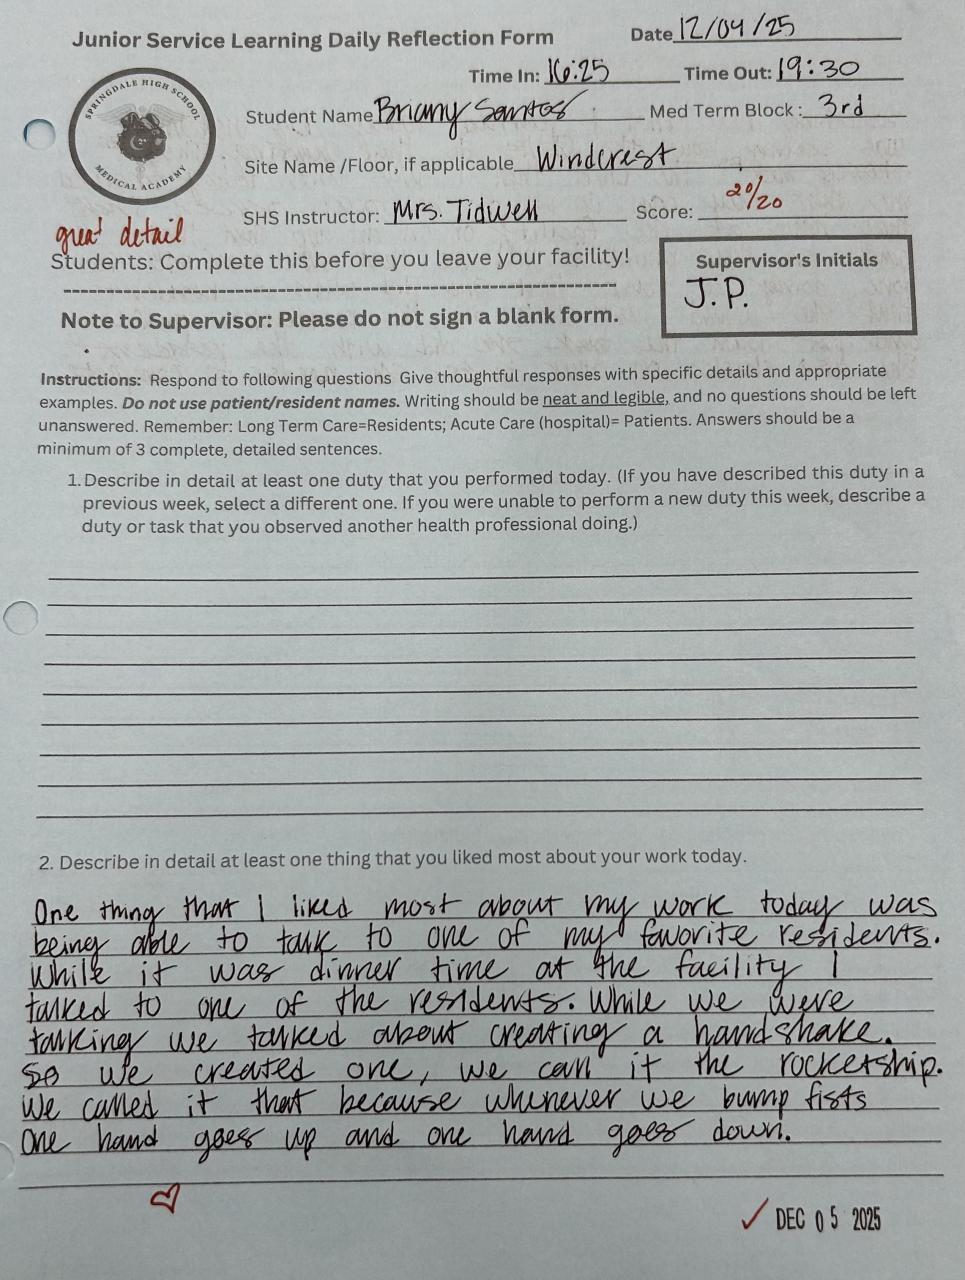 Junior Service Learning Daily Reflection Form
Date 12/04/25
Time In: 16:25 Time Out: 19:30
SPRINGDALE HIGH SCHOOL
MEDICAL ACADEMY
Student Name Briany Santos Med Term Block: 3rd
Site Name /Floor, if applicable Windcrest
SHS Instructor: Mrs. Tidwell Score: 20/20
great detail
Students: Complete this before you leave your facility!
Supervisor's Initials
J.P.
Note to Supervisor: Please do not sign a blank form.
Instructions: Respond to following questions Give thoughtful responses with specific details and appropriate
examples. Do not use patient/resident names. Writing should be neat and legible, and no questions should be left
unanswered. Remember: Long Term Care=Residents; Acute Care (hospital)= Patients. Answers should be a
minimum of 3 complete, detailed sentences.
1. Describe in detail at least one duty that you performed today. (If you have described this duty in a
previous week, select a different one. If you were unable to perform a new duty this week, describe a
duty or task that you observed another health professional doing.)
2. Describe in detail at least one thing that you liked most about your work today.
One thing that I liked most about my work today was
being able to talk to one of my favorite residents.
While it was dinner time at the facility I
talked to one of the residents. While we were
talking we talked about creating a handshake.
So we created one, we call it the rocketship.
We called it that because whenever we bump fists
one hand goes up and one hand goes down.
DEC 05 2025